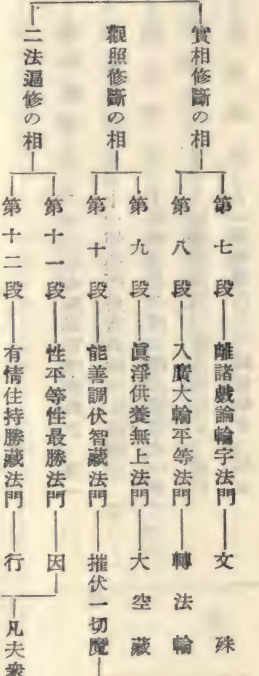 實相修斷の相
第七段
離諸戲論輪字法門
文殊
第八段
入廣大輪平等法門
轉法輪
觀照修斷の相
第九段
眞淨供養無上法門
大空藏
第十段
能善調伏智藏法門
摧伏一切魔
二法逼修の相
第十一段
性平等性最勝法門
因
第十二段
有情住持勝藏法門
行
凡夫衆